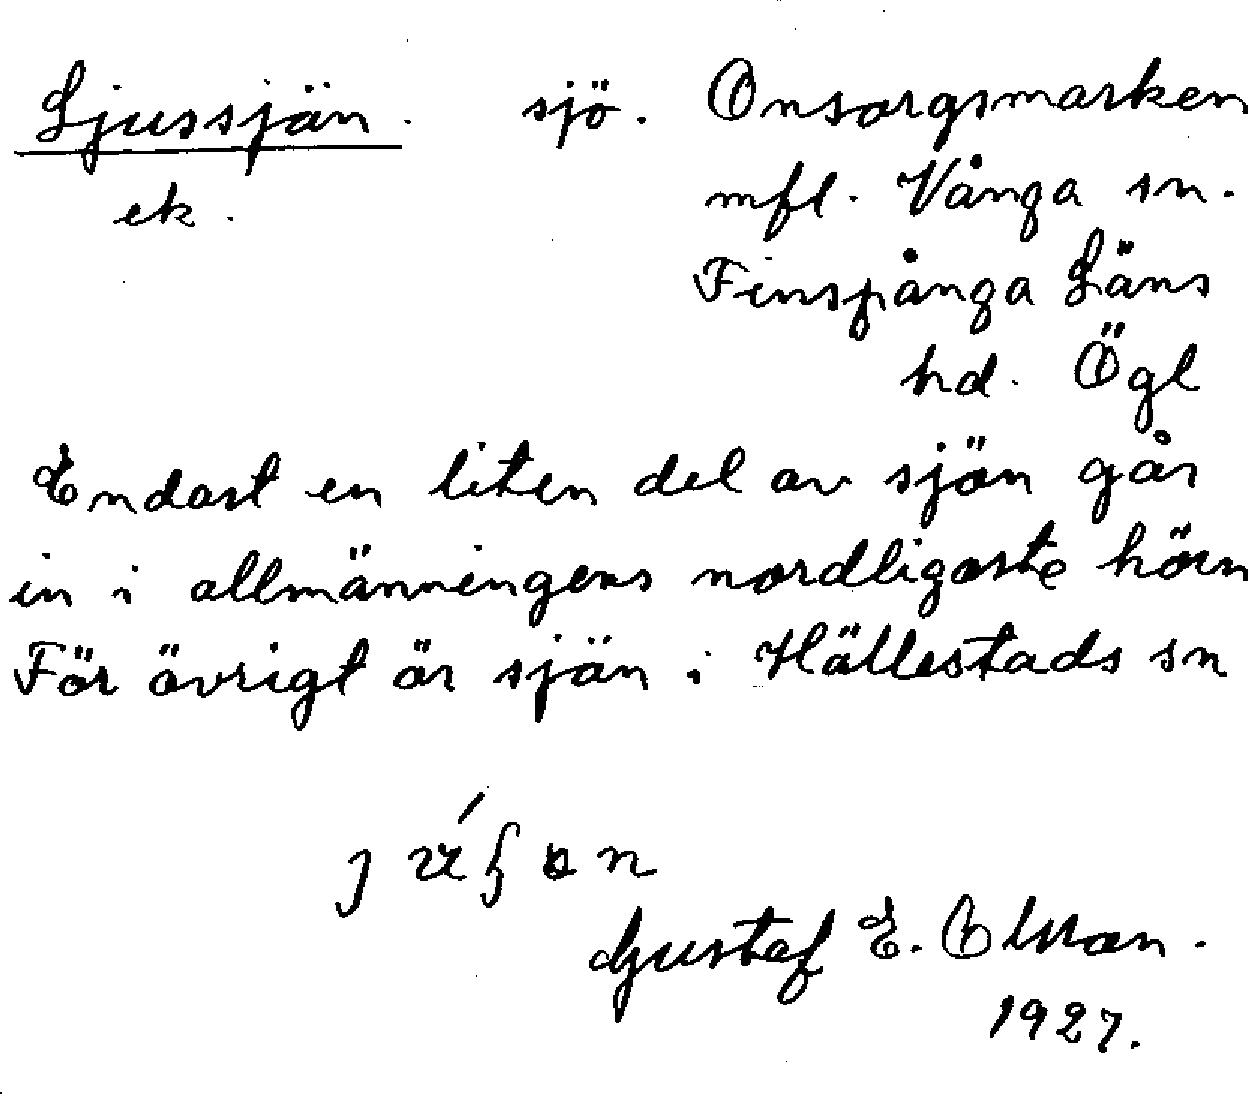 Ljussjön. sjö. Onsorgsmarken
ek. mfl. Vånga sn.
Finspånga Läns
hd. Ögl
Endast en liten del av sjön går
in i allmänningens nordligaste hörn
För övrigt är sjön i Hällestads sn
Gustaf E. Olsson.
1927.